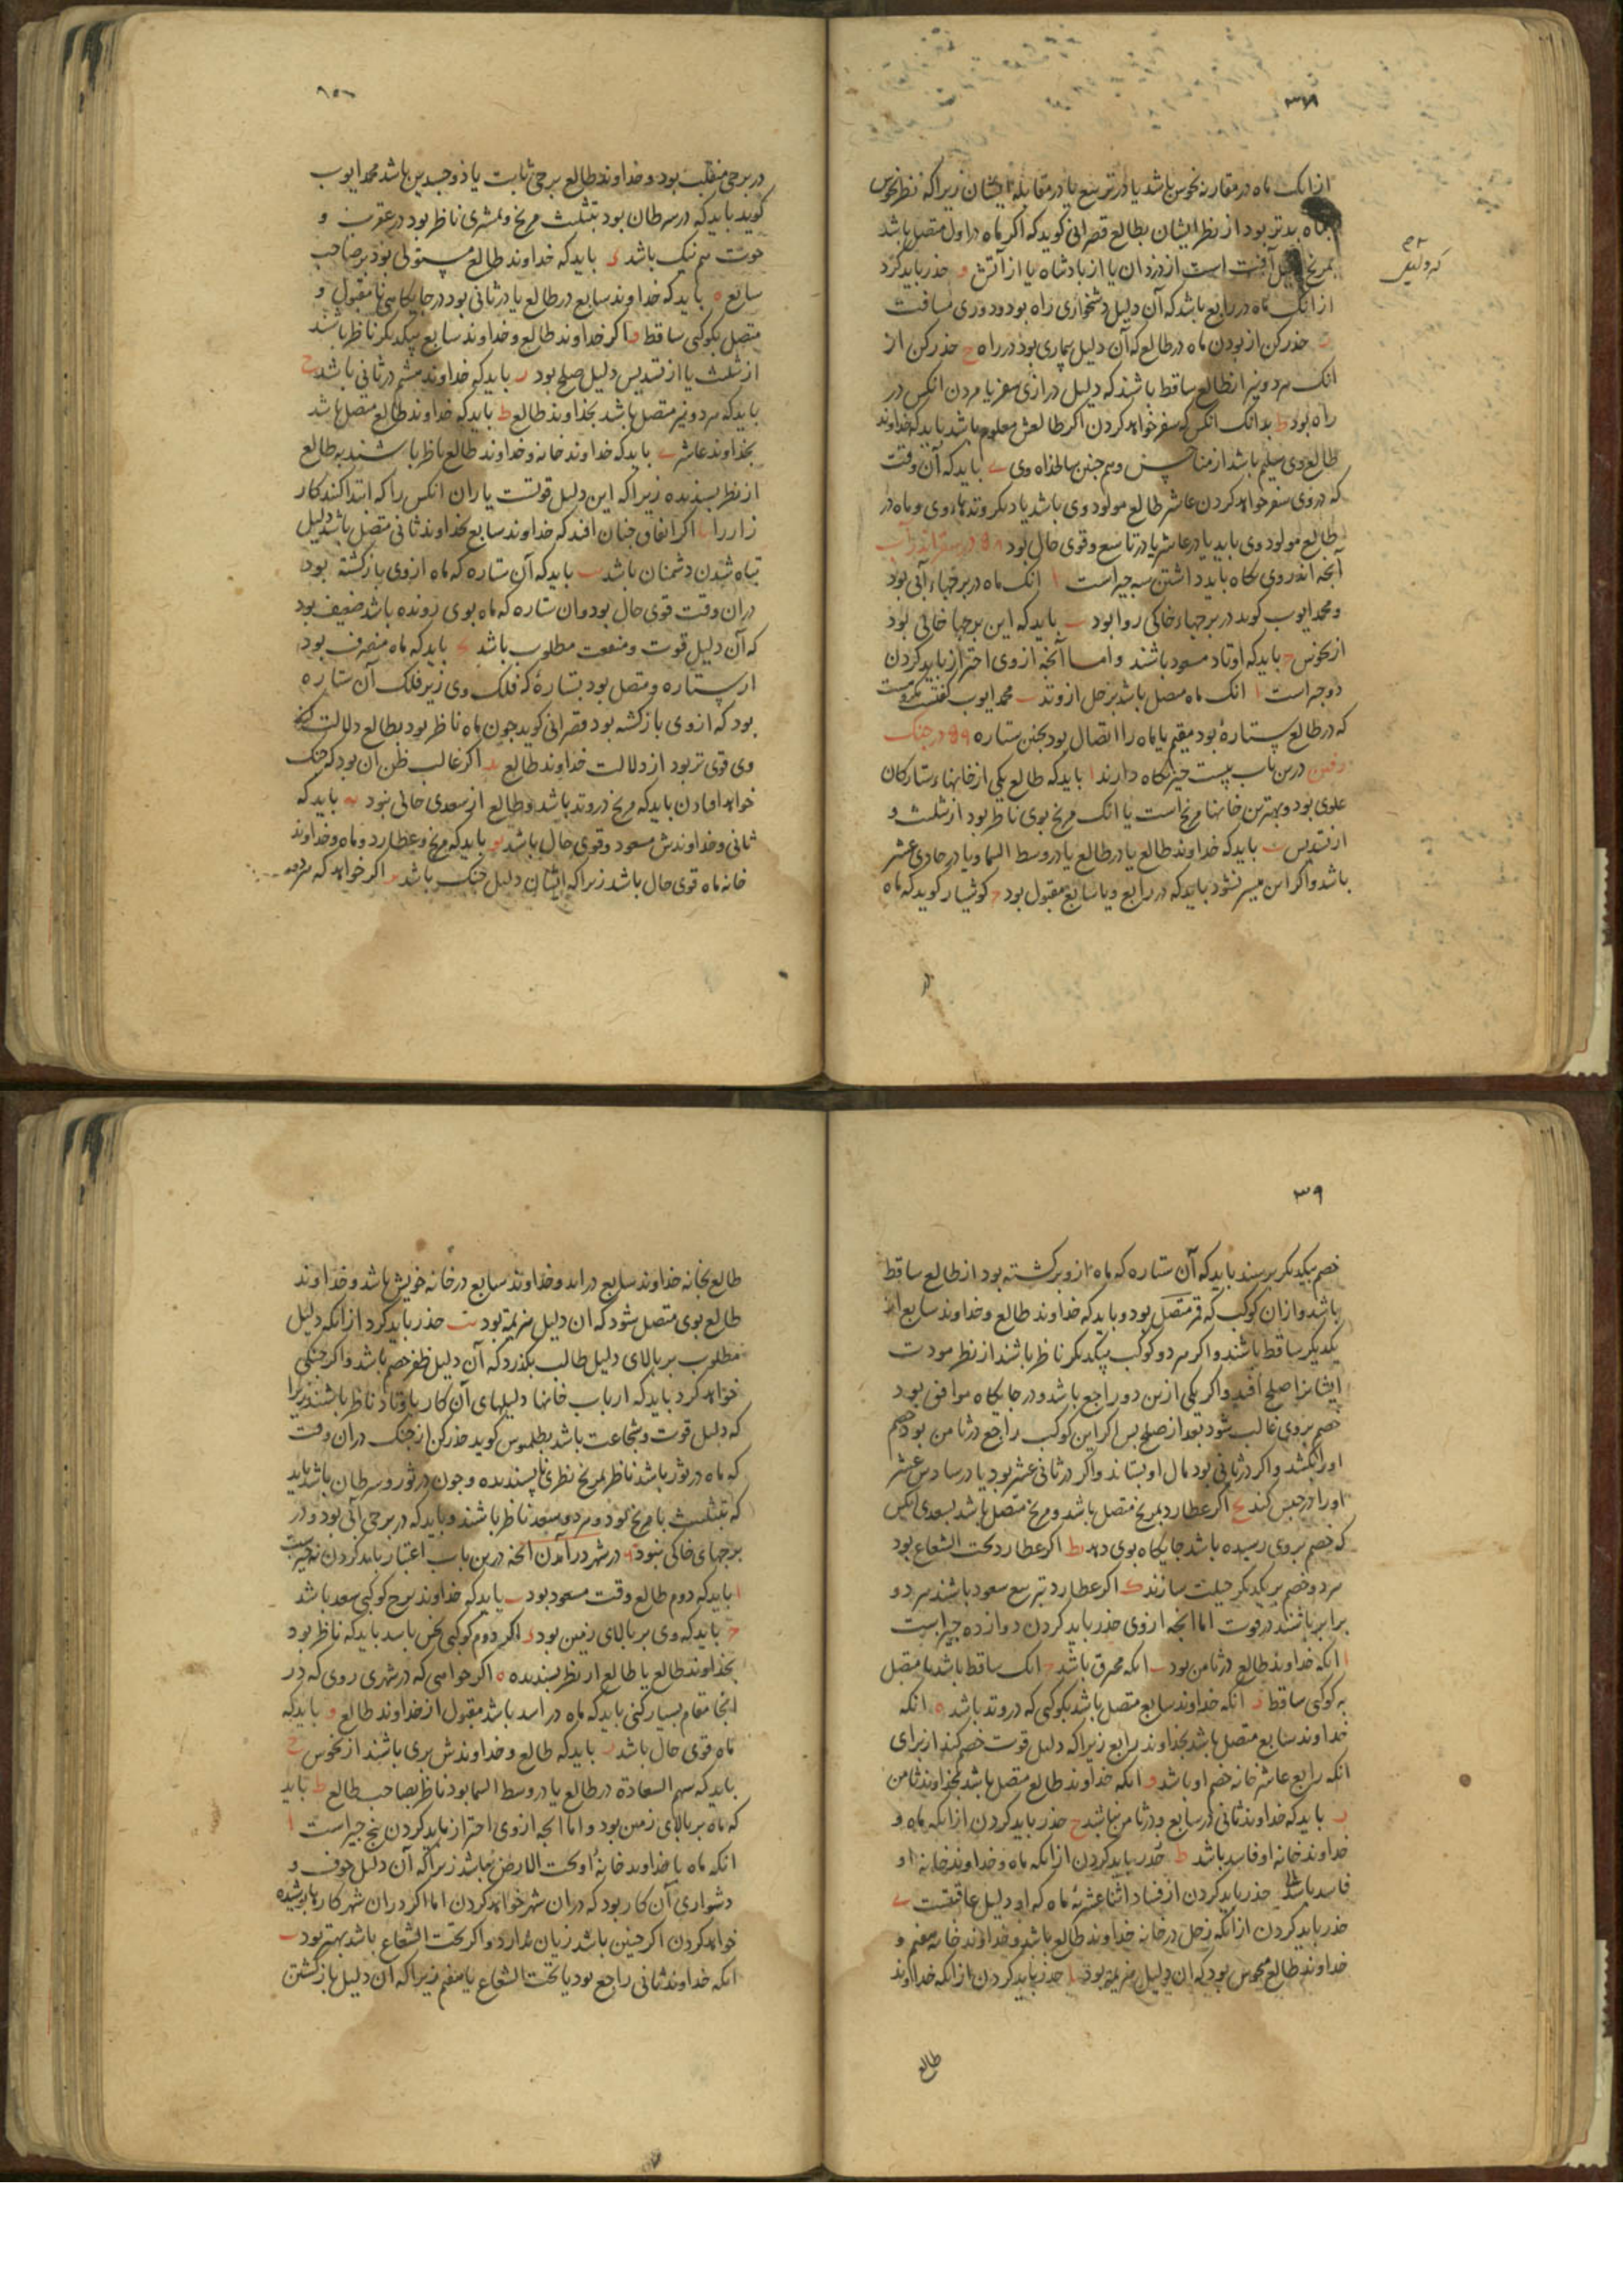 ٣٨
ازانک ماه در مقارنه نحوس باشد یا در تربیع یا در مقابله ایشان زیراکه نظر نحوس
بماه بدتر بود از نظر ایشان بطالع قصرانی کوید که اکر ماه در اول متصل باشد
بمریخ دلیل آفت است از دزدان یا از بادشاه یا از آتش و حذر باید کرد
ازانک ماه در رابع باشد که آن دلیل دشخواری راه بود و دوری مسافت
ز حذر کن از بودن ماه در طالع که آن دلیل بیماری بود در راه ح حذر کن از
انک هر دو نیر از طالع ساقط باشند که دلیل درازی سفر یا مردن انکس در
راه بود ط بدانک انکس که سفر خواهد کردن اکر طالعش معلوم باشد باید که خداوند
طالع وی سلیم باشد از مناحس و هم جنین سالخداه وی ی باید که آن وقت
که در وی سفر خواهد کردن عاشر طالع مولود وی باشد یا دیکر وتدهاء وی و ماه در
طالع مولود وی باید یا در عاشر یا در تاسع و قوی حال بود در سفر اندر آب
آنجه اندر وی نکاه باید داشتن سه جیز است ا انک ماه در برجهاء آبی بود
و محمد ایوب کوید در برجهاء خاکی روا بود ب باید که این برجها خالی بود
از نحوس ج باید که اوتاد مسعود باشند و اما آنجه از وی احتراز باید کردن
دو جیز است ا انک ماه متصل باشد بزحل از وتد ب محمد ایوب کفتست
که در طالع ستارهٔ بود مقیم یا ماه را اتصال بود بجنین ستاره ٩٩ در جنک
رفتن درین باب بیست جیز نکاه دارند ا باید که طالع یکی از خانهاء ستارکان
علوی بود و بهترین خانهاء مریخ است یا انک مریخ بوی ناظر بود از تثلیث و
از تسدیس ب باید که خداوند طالع یا در طالع یا در وسط السما و یا در حادی عشر
باشد و اکر این میسر نشود باید که در رابع و یا سابع مقبول بود ج کوشیار کوید که ماه
در
در برجی منقلب بود و خداوند طالع برجی ثابت یا ذوجسدین باشد محمد ایوب
کوید باید که در سرطان بود بتثلیث مریخ و بمشتری ناظر بود در عقرب و
حوت هم نیک باشد د باید که خداوند طالع مستولی بود بر صاحب
سابع ه باید که خداوند سابع در طالع یا در ثانی بود در جایکاهی نامقبول و
متصل بکوکبی ساقط و اکر خداوند طالع و خداوند سابع بیکدیکر ناظر باشند
از تثلیث یا از تسدیس دلیل صلح بود ز باید که خداوند هشتم در ثانی باشد ح
باید که هر دو نیر متصل باشد بخداوند طالع ط باید که خداوند طالع متصل باشد
بخداوند عاشر ی باید که خداوند خانه و خداوند طالع ناظر باشند به طالع
از نظر بسندیده زیراکه این دلیل قوتست یاران انکس را که ابتدا کند کار
زار را یا اکر اتفاق جنان افتد که خداوند سابع بخداوند ثانی متصل باشد دلیل
تباه شدن دشمنان باشد یب باید که آن ستاره که ماه از وی بازکشته بود
دران وقت قوی حال بود وان ستاره که ماه بوی رونده باشد ضعیف بود
که آن دلیل قوت و منفعت مطلوب باشد یج باید که ماه منصرف بود
از ستاره و متصل بود بستارهٔ که فلک وی زیر فلک آن ستاره
بود که از وی بازکشته بود قصرانی کوید جون ماه ناظر بود بطالع دلالت
وی قوی تر بود از دلالت خداوند طالع ید اکر غالب ظن آن بود که جنک
خواهد افتادن باید که مریخ در وتد باشد و طالع از سعدی خالی نبود یه باید که
ثانی و خداوندش مسعود و قوی حال باشد یو باید که مریخ و عطارد و ماه و خداوند
خانه ماه قوی حال باشد زیراکه ایشان دلیل جنک باشد یز اکر خواهد که هر دو
٣٩
خصم بیکدیکر برسند باید که آن ستاره که ماه ازو برکشته بود از طالع ساقط
باشد و ازان کوکب که قمر متصل بود و باید که خداوند طالع و خداوند سابع از
یکدیکر ساقط باشند و اکر هر دو کوکب بیکدیکر ناظر باشند از نظر مودت
ایشانرا صلح افتد و اکر یکی ازین دو راجع باشد و در جایکاه موافق بود
خصم بروی غالب شود بعد از صلح بس اکر این کوکب راجع در ثامن بود خصم
اورا بکشد و اکر در ثانی بود مال او بستاند و اکر در ثانی عشر بود یا در سادس عشر
اورا در حبس کند یح اکر عطارد بمریخ متصل باشد و مریخ متصل باشد بسعدی انکس
که خصم بروی رسیده باشد جایکاه بوی دهد یط اکر عطارد تحت الشعاع بود
هر دو خصم بر یکدیکر حیلت سازند ک اکر عطارد بتربیع سعود باشند هر دو
برابر باشند در قوت اما انجه از وی حذر باید کردن دوازده جیز است
ا انکه خداوند طالع در ثامن بود ب انکه محترق باشد ج انک ساقط باشد یا متصل
به کوکبی ساقط د انکه خداوند سابع متصل باشد بکوکبی که در وتد باشد ه انکه
خداوند سابع متصل باشد بخداوند رابع زیراکه دلیل قوت خصم کند از برای
انکه رابع عاشر خانه خصم او باشد و انکه خداوند طالع متصل باشد بخداوند ثامن
ز باید که خداوند ثانی در سابع و در ثامن نباشد ح حذر باید کردن ازانکه ماه و
خداوند خانه او فاسد باشد ط حذر باید کردن ازانکه ماه و خداوند خانه او
فاسد باشد حذر باید کردن از فساد اثناعشریهٔ ماه که او دلیل عاقبتست ی
حذر باید کردن ازانکه زحل در خانه خداوند طالع باشد و خداوند خانه هفتم و
خداوند طالع منحوس بود که آن دلیل هزیمت بود یا حذر باید کردن ازانکه خداوند
طالع
طالع بخانه خداوند سابع در اید و خداوند سابع در خانه خویش باشد و خداوند
طالع بوی متصل شود که ان دلیل هزیمت بود یب حذر باید کرد ازانکه دلیل
مطلوب بر بالای دلیل طالب بکذرد که آن دلیل ظفر خصم باشد و اکر جنکی
خواهد کرد باید که ارباب خانها دلیلهای آن کار باوتاد ناظر باشند زیرا
که دلیل قوت و شجاعت باشد بطلمیوس کوید حذر کن از جنک دران وقت
که ماه در ثور باشد ناظر بمریخ نظری ناپسندیده و جون در ثور و سرطان باشد باید
که بتثلیث با مریخ بود و هر دو سعد ناظر باشند و باید که در برجی آبی بود و در
برجهای خاکی نبود در شهر در آمدن آنجه درین باب اعتبار باید کردن نه جیز است
ا باید که دوم طالع وقت مسعود بود ب باید که خداوند برج کوکبی سعد باشد
ج باید که وی بر بالای زمین بود د اکر دوم کوکبی نحس باشد باید که ناظر بود
بخداوند طالع یا طالع از نظر بسندیده ه اکر خواهی که در شهری روی که در
انجا مقام بسیار کنی باید که ماه در اسد باشد مقبول از خداوند طالع و باید که
ماه قوی حال باشد ز باید که طالع و خداوندش بری باشند از نحوس ح
باید که سهم السعادة در طالع یا در وسط السما بود ناظر بصاحب طالع ط باید
که ماه بر بالای زمین بود و اما انجه از وی احتراز باید کردن پنج جیز است ا
انکه ماه با خداوند خانهٔ او تحت الارض نباشد زیراکه آن دلیل خوف و
دشواری آن کار بود که دران شهر خواهد کردن اما اکر دران شهر کارهاء پوشیده
خواهد کردن اکر جنین باشد زیان ندارد و اکر تحت الشعاع باشد بهتر بود ب
انکه خداوند ثانی راجع بود یا تحت الشعاع یا مقیم زیراکه آن دلیل بازکشتن